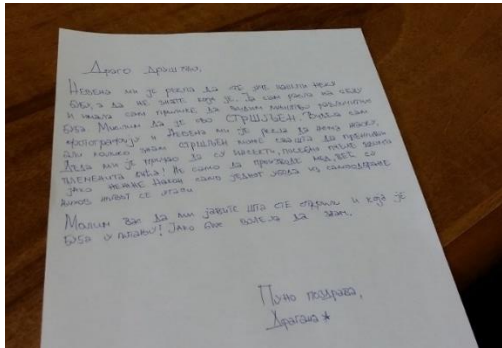 Драго друштво,
Невена ми је рекла да сте уже нашли неку
бубу, а да не знате која је. Ја сам расла на селу
и имала сам прилике да видим мноштво различитих
буба. Мислим да је ово СТРШЉЕН. Видела сам
фотографију и Невена ми је рекла да нема жаоку,
али колико знам стршљен може свашта да преживи.
Деда ми је причао да су инсекти, посебно пчеле заиста
племенита бића! Не само да производе мед, већ су
јако нежне. Након само једног убода из самоодбране
њихов живот се угаси.
Молим вас да ми јавите шта сте открили и која је
буба у питању! Јако бих волела да знам.
Пуно поздрава,
Драгана*